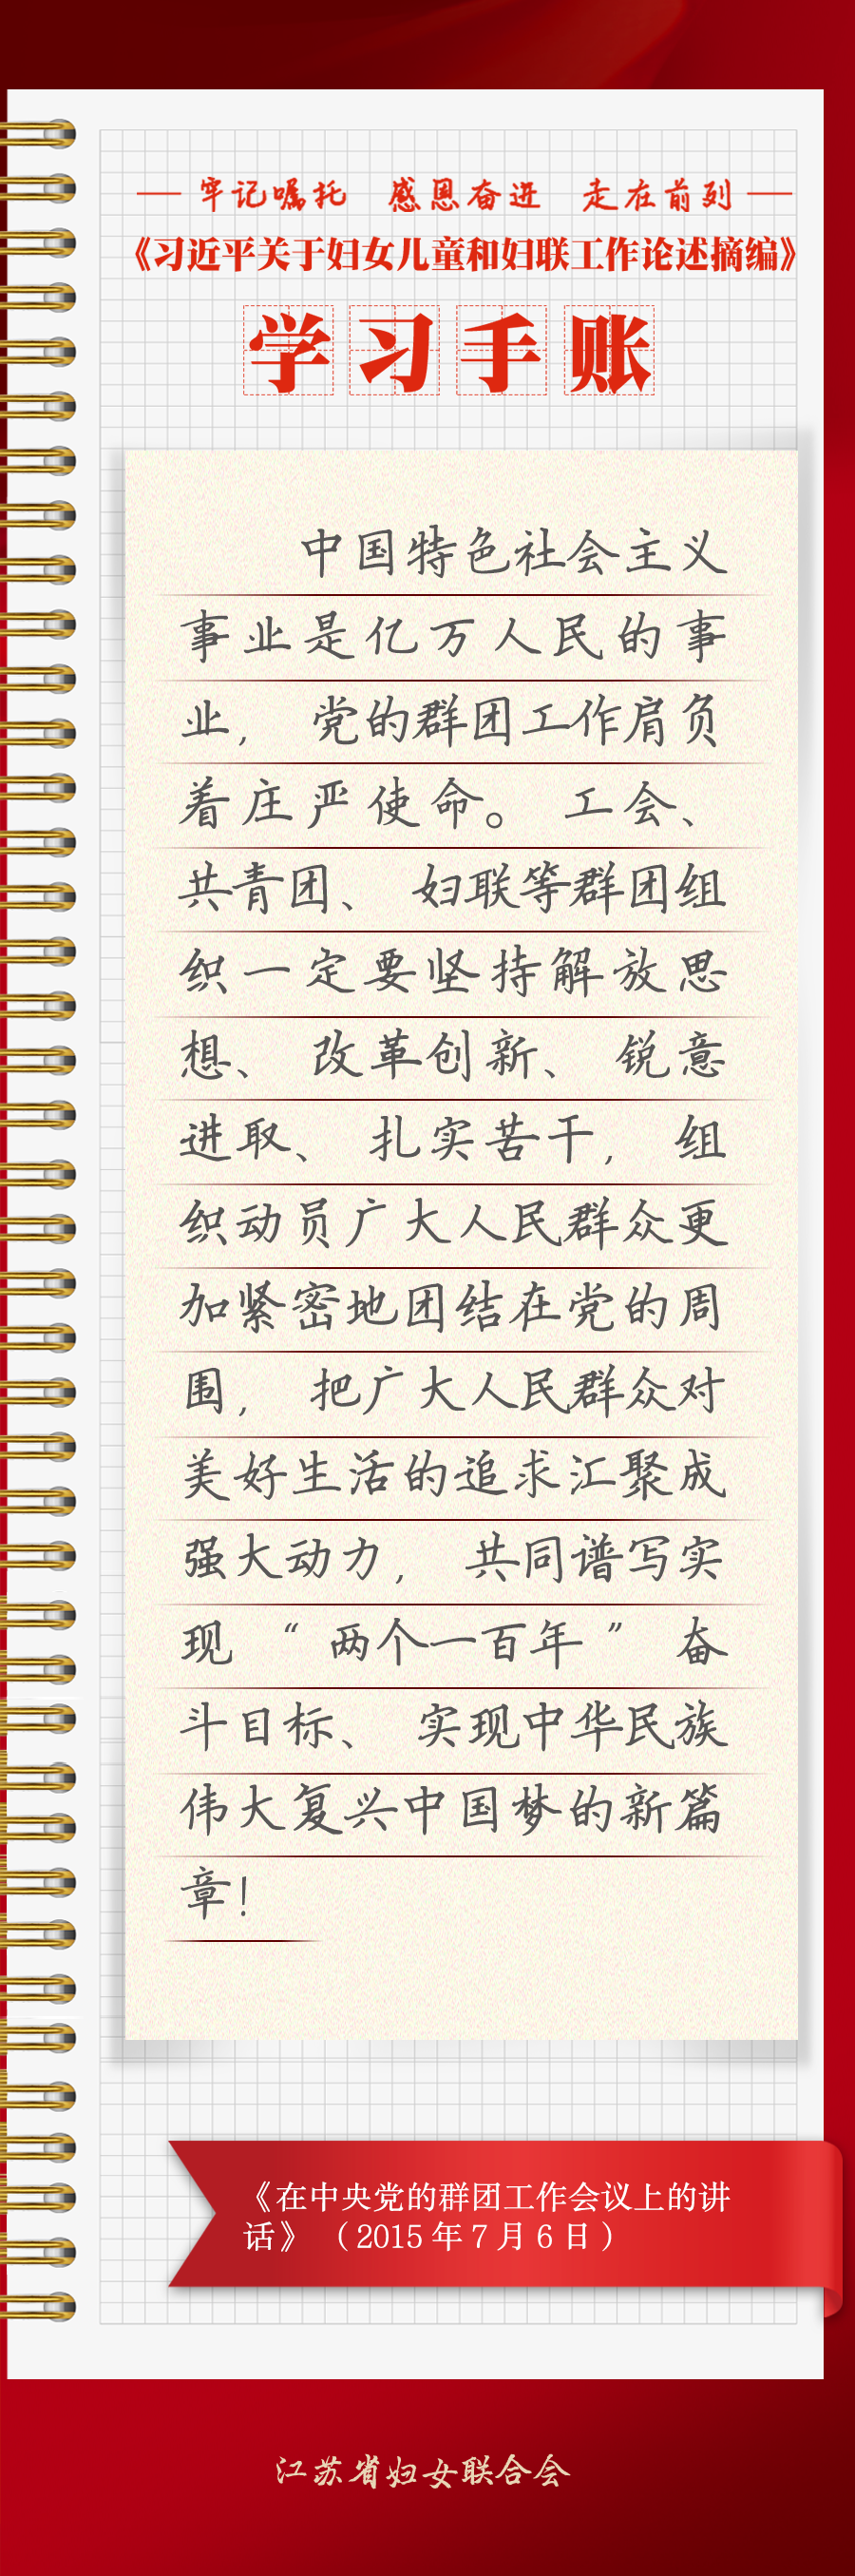 牢记嘱托 感恩奋进 走在前列
《习近平关于妇女儿童和妇联工作论述摘编》
学习手账
中国特色社会主义
事业是亿万人民的事
业，党的群团工作肩负
着庄严使命。工会、
共青团、妇联等群团组
织一定要坚持解放思
想、改革创新、锐意
进取、扎实苦干，组
织动员广大人民群众更
加紧密地团结在党的周
围，把广大人民群众对
美好生活的追求汇聚成
强大动力，共同谱写实
现“两个一百年”奋
斗目标、实现中华民族
伟大复兴中国梦的新篇
章！
《在中央党的群团工作会议上的讲
话》（2015年7月6日）
江苏省妇女联合会